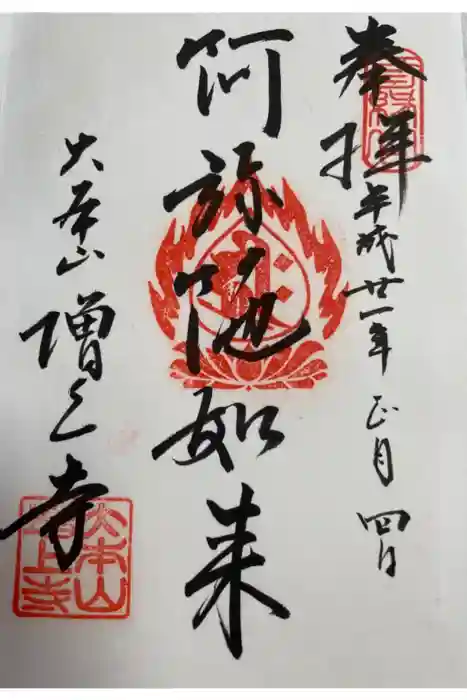 奉拝
平成廿一年正月四日
阿弥陀如来
大本山増上寺
大本山
増上寺